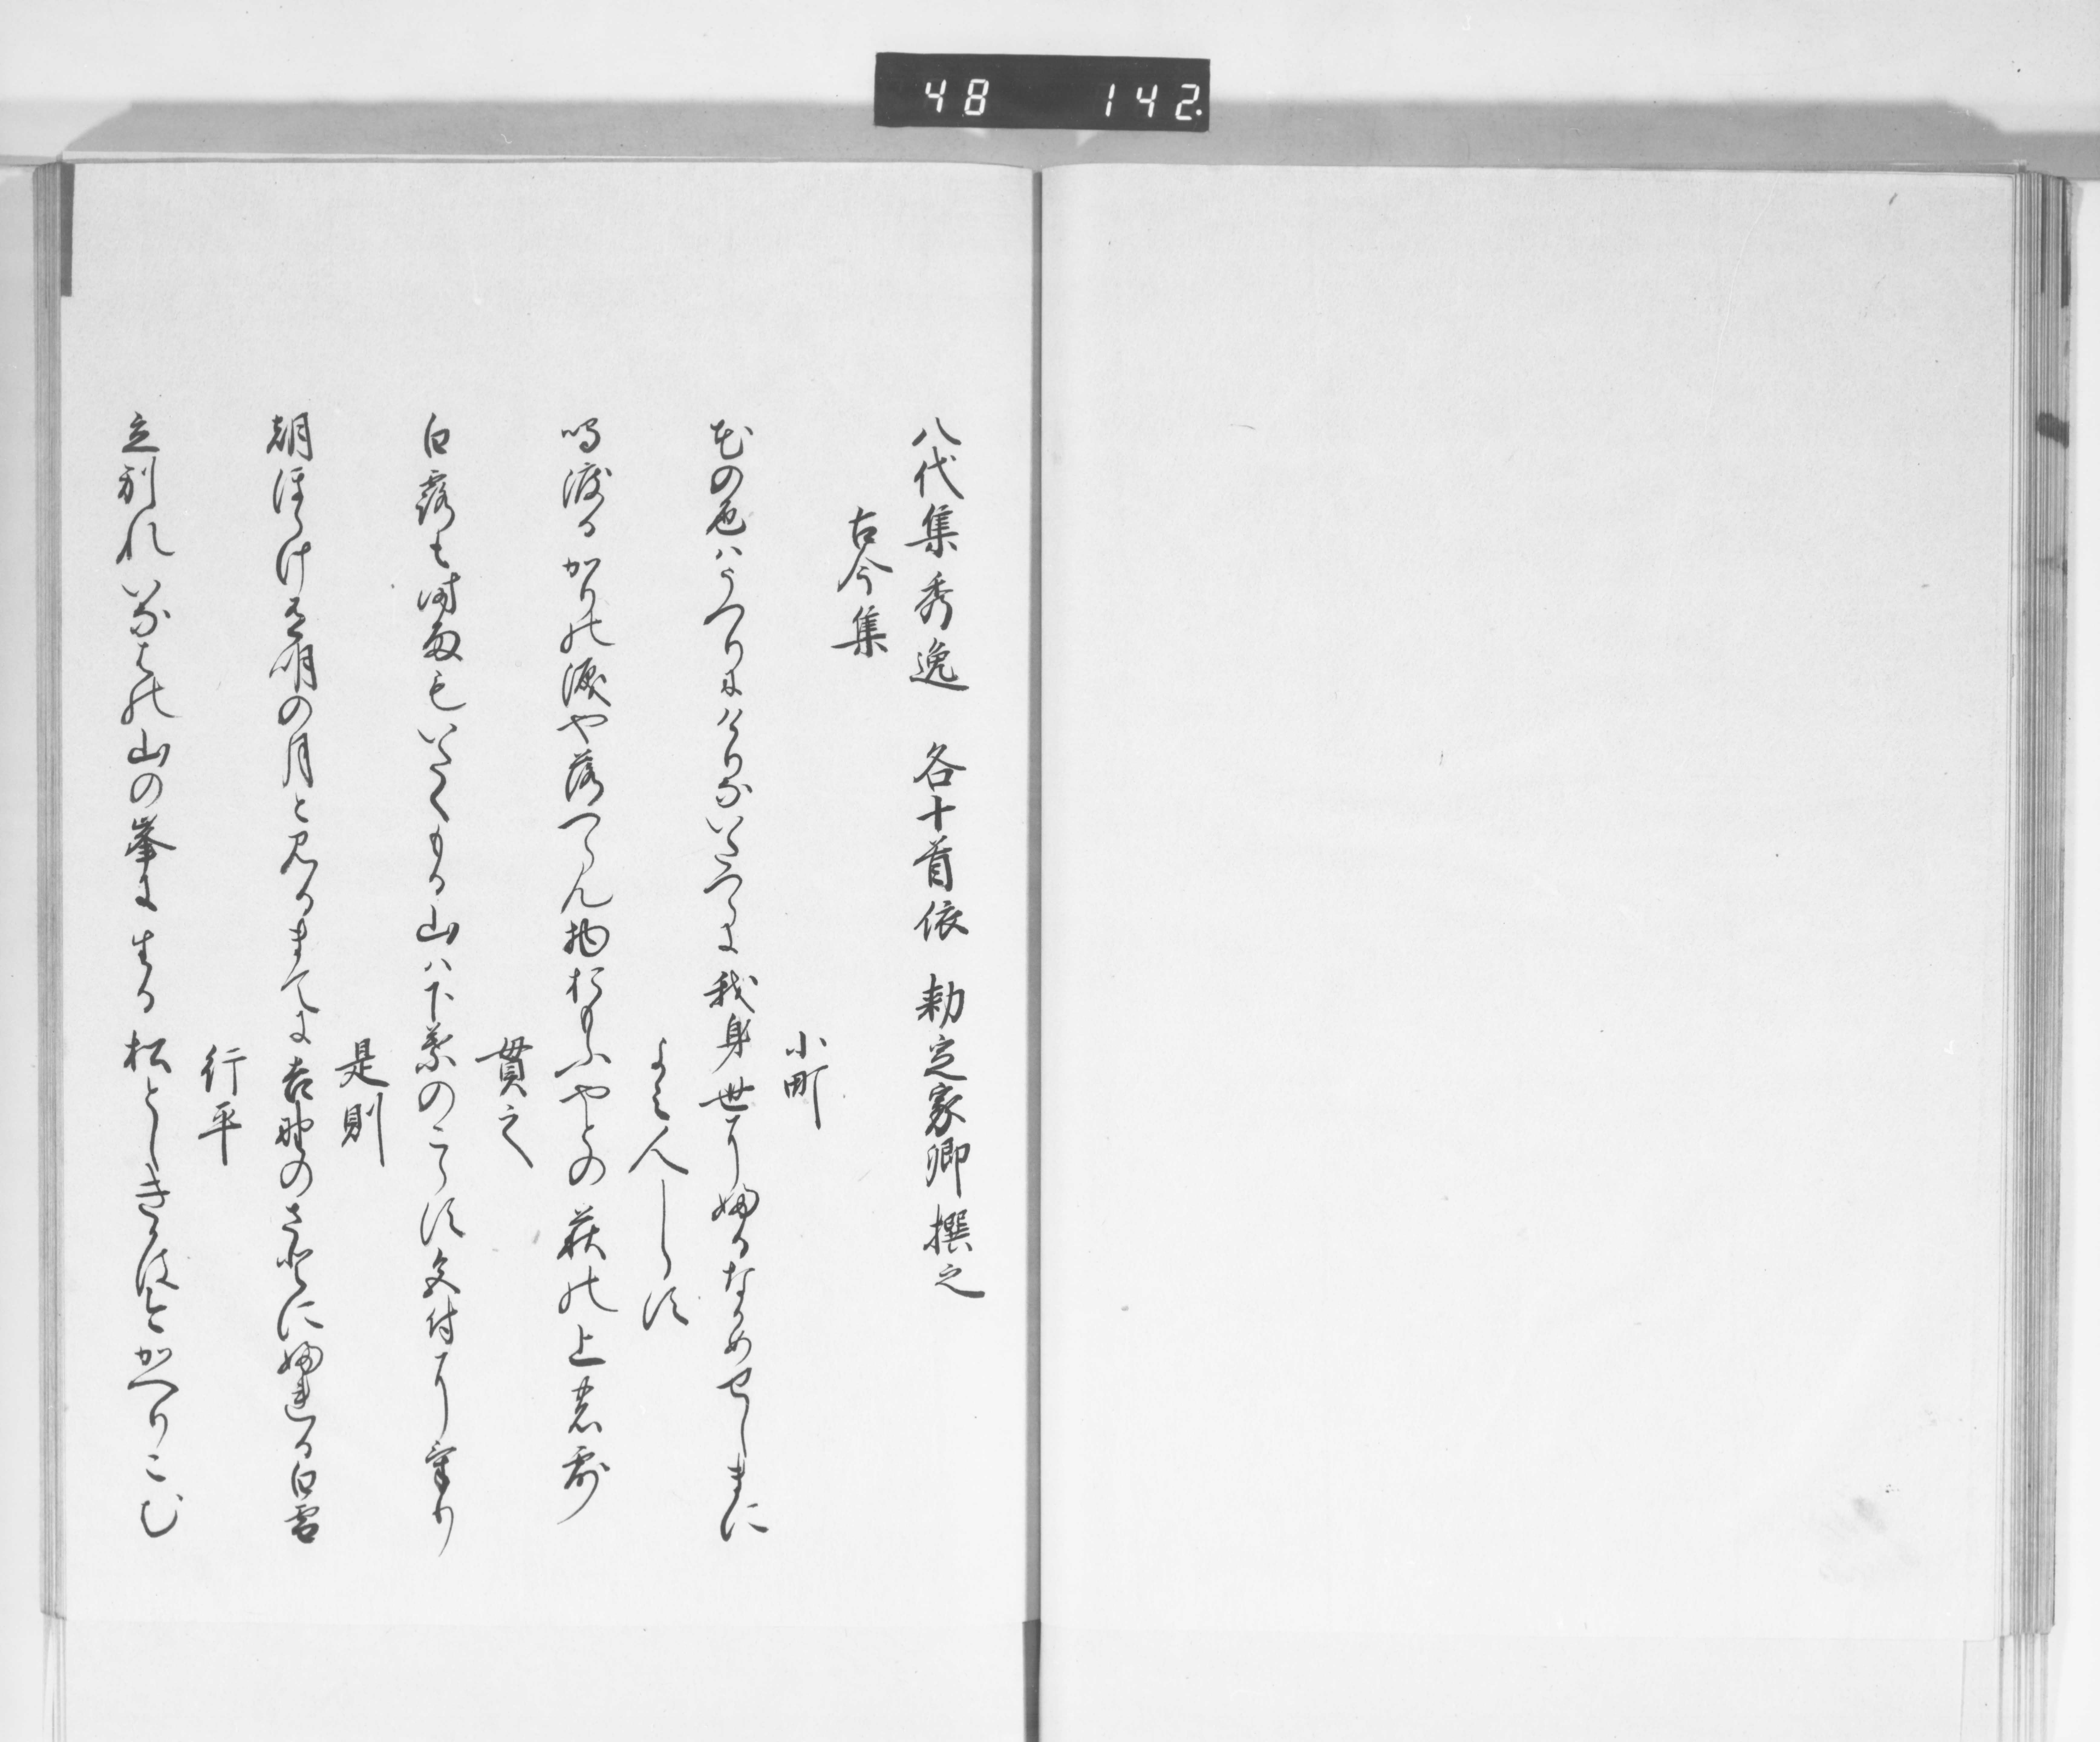 48 142
八代集秀逸 各十首依 勅定家卿撰之
古今集
小町
花の色はうつりにけりないたつらに我身世にふるなかめせしまに
よみ人しらす
鳴渡るかりの涙や落つらん物おもふやとの萩の上の露
貫之
白露も時雨もいたくもる山は下葉のこらす色付にけり
是則
朝ほらけ有明の月と見るまてに吉野のさとにふれる白雪
行平
立別れいなはの山の峯に生る松としきかは今かへりこむ